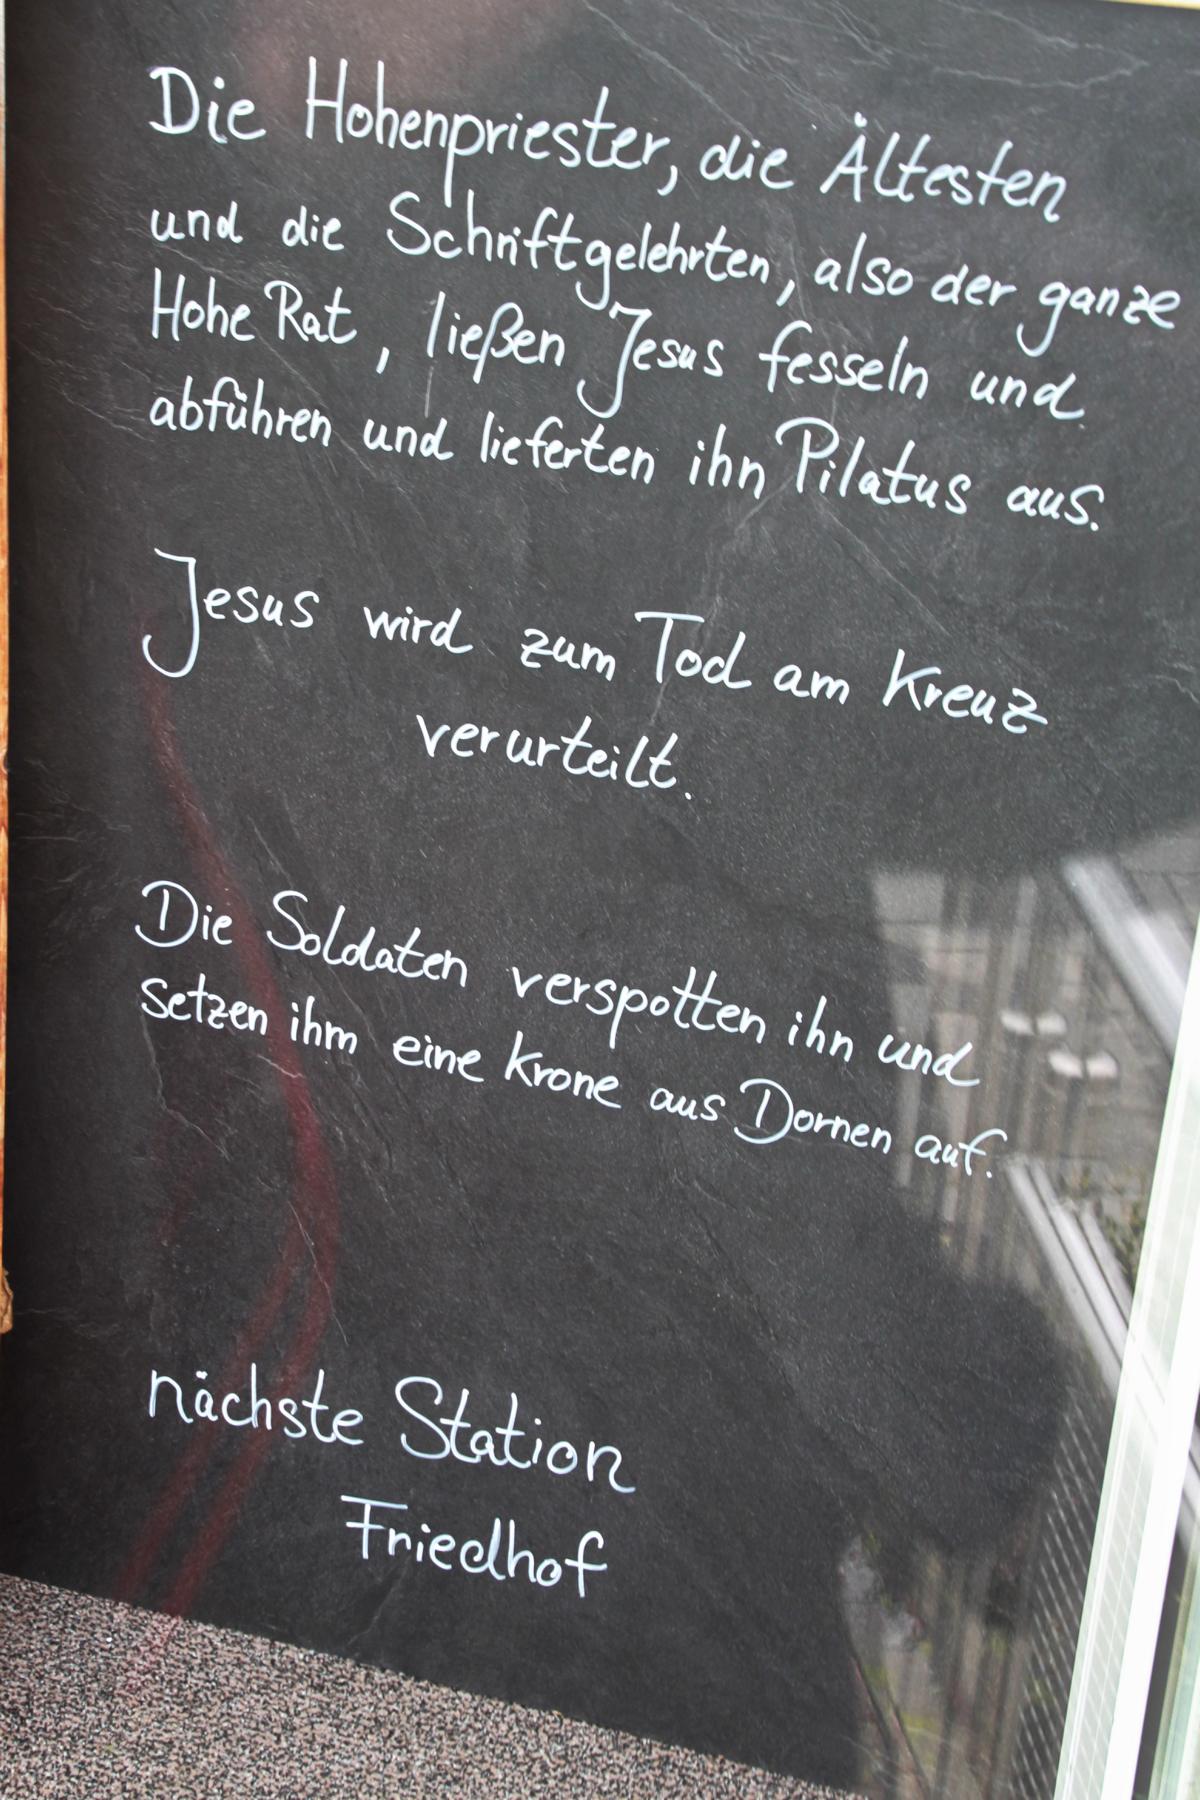 Die Hohenpriester, die Ältesten
und die Schriftgelehrten, also der ganze
Hohe Rat, ließen Jesus fesseln und
abführen und lieferten ihn Pilatus aus.
Jesus wird zum Tod am Kreuz
verurteilt.
Die Soldaten verspotten ihn und
setzen ihm eine Krone aus Dornen auf.
nächste Station
Friedhof